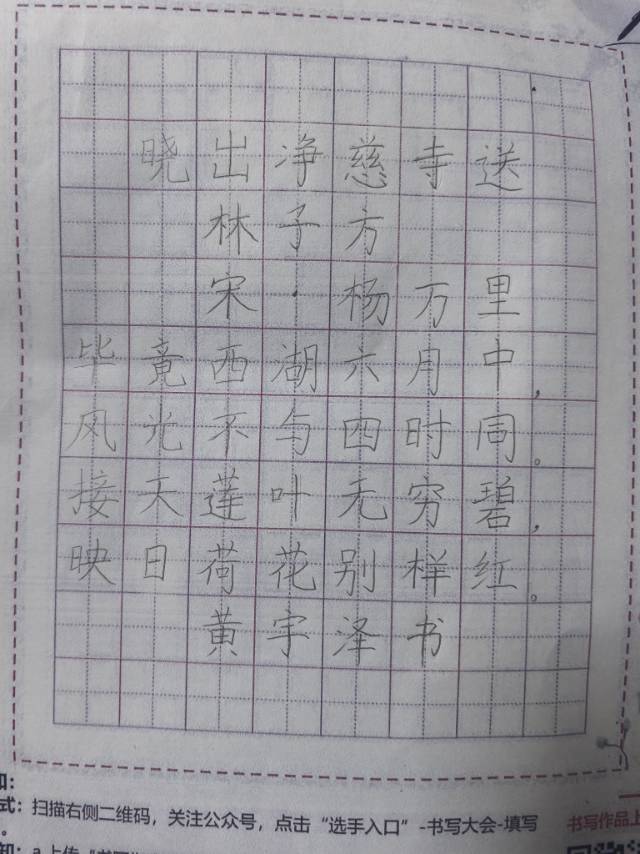 晓出净慈寺送
林子方
宋·杨万里
毕竟西湖六月中，
风光不与四时同。
接天莲叶无穷碧，
映日荷花别样红。
黄宇泽书
知：
式：扫描右侧二维码，关注公众号，点击“选手入口”-书写大会-填写
书写作品上